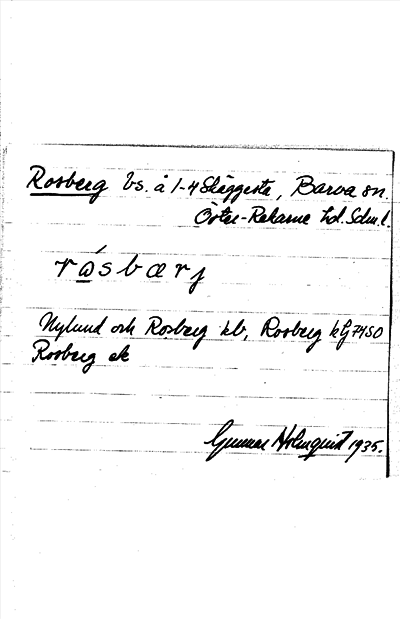 Rosberg bs. å 1-4 Skäggesta, Barva sn
Öster-Rekarne hd. Sdm.l.
rósbærj
Nylund och Rosberg kb, Rosberg kbj 7450
Rosberg ek
Gunnar Holmquist 1935.